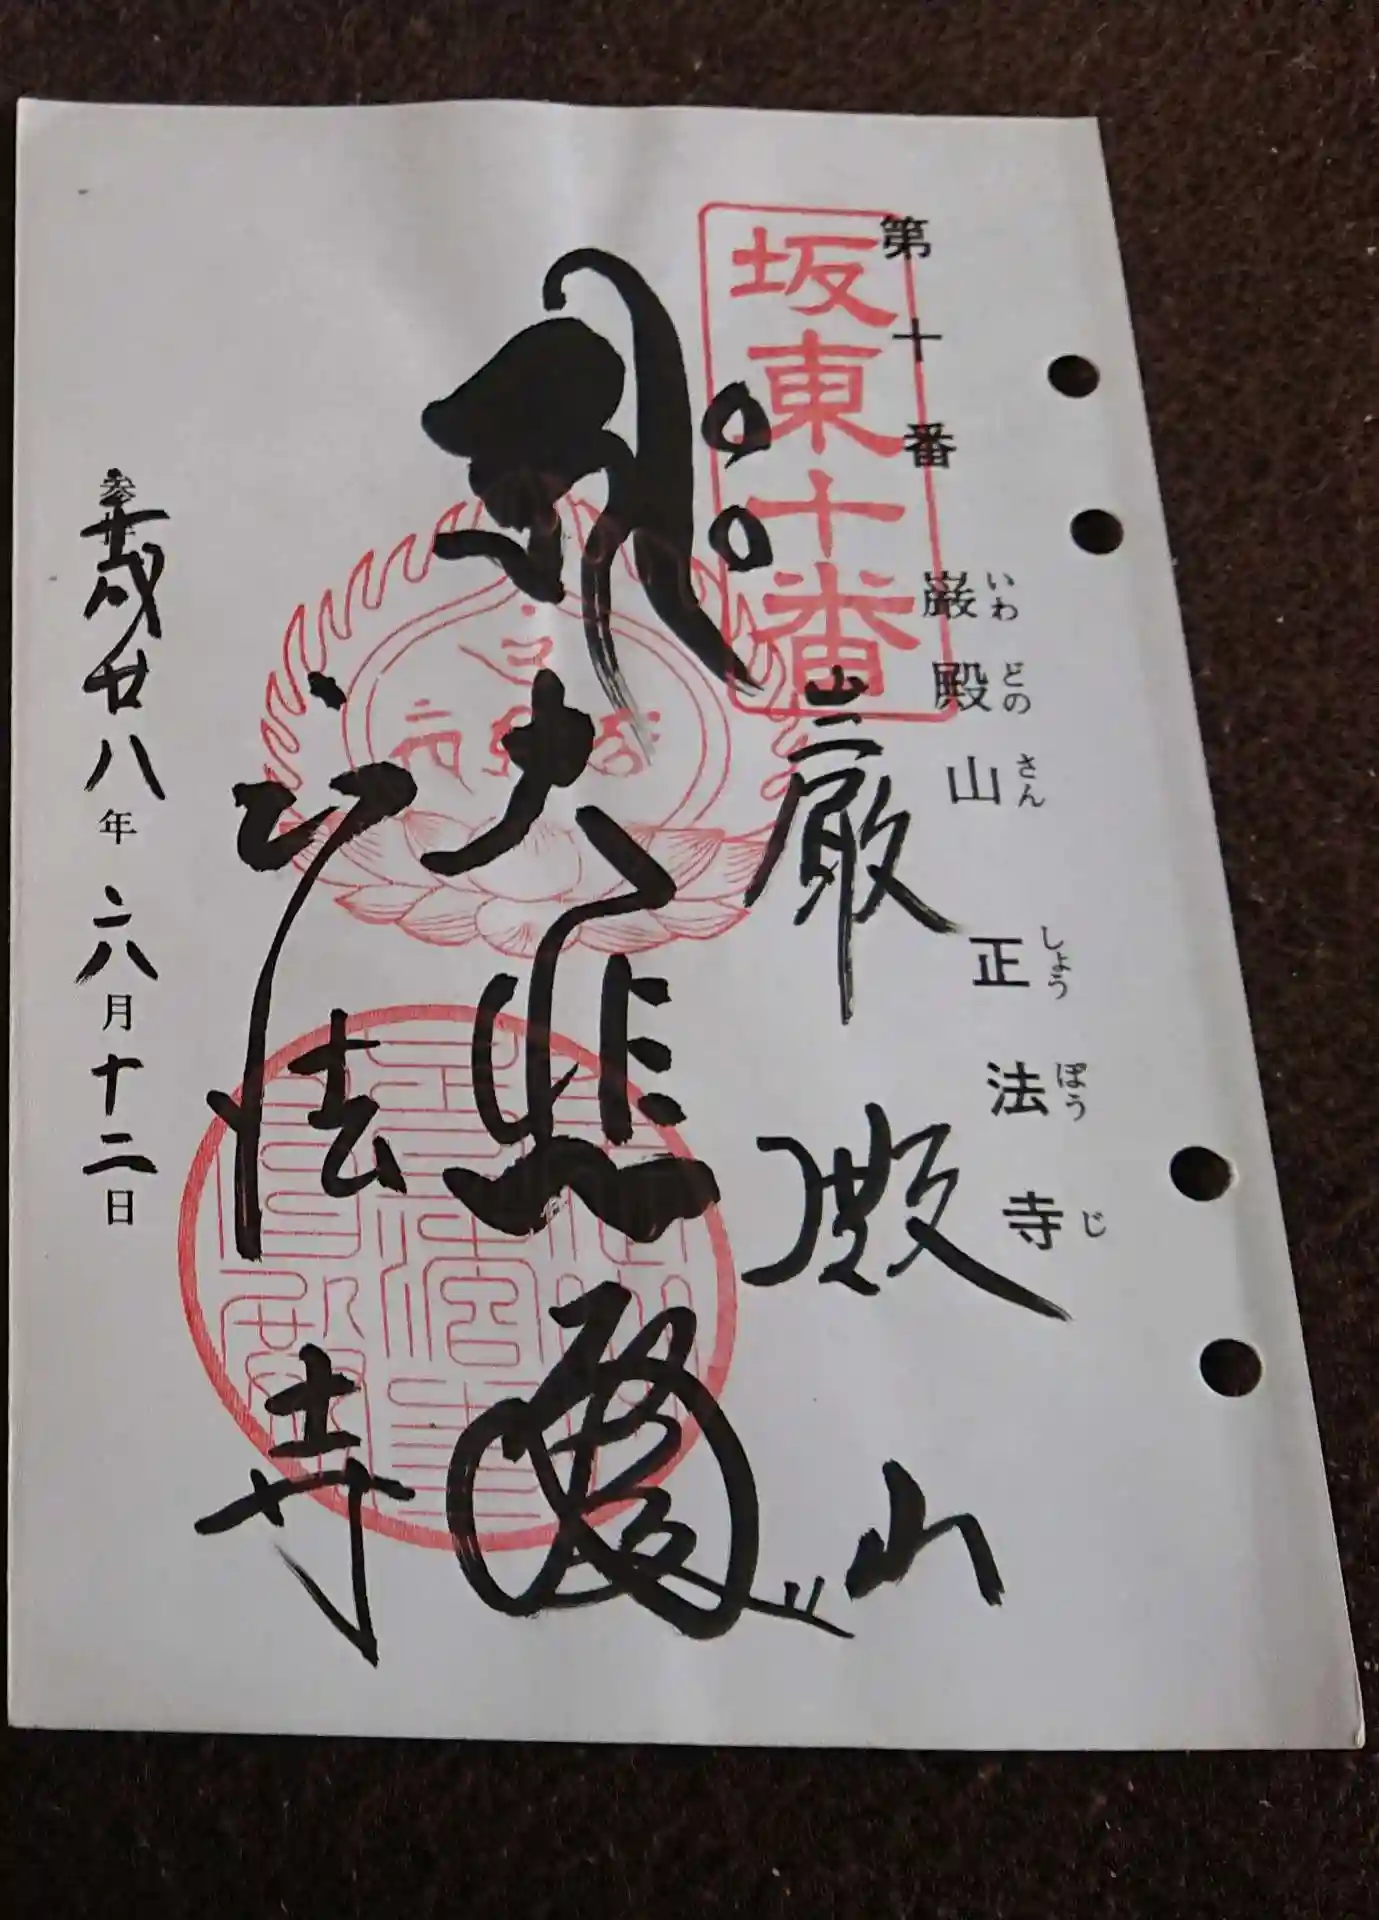 第十番
巌殿山 正法寺
いわどのさん しょうぼうじ
坂東十番
巌殿山
大悲閣
正法寺
歳廿八年六月十二日